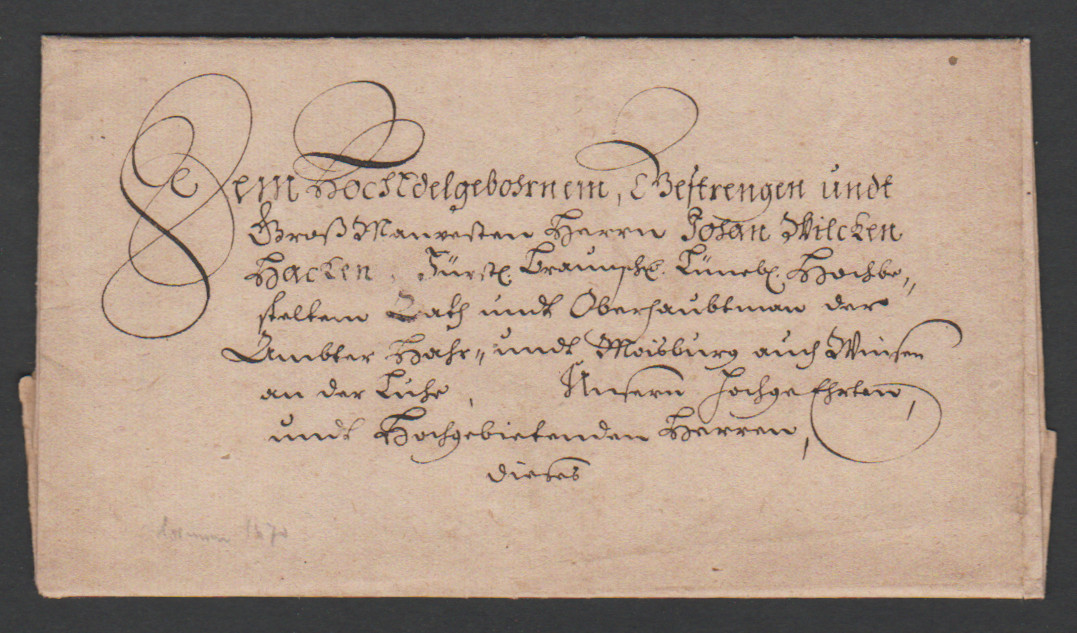 Dem HochEdelgebohrnem, Gestrengen undt
Groß Manvesten Herrn Johan Wilcken
Hacken, Fürstl. Braunschl. Lünebl. Hochbe„
steltem Rath undt Oberhaubtman der
Ämbter Hahr„ undt Moisburg auch Winsen
an der Luhe, Unsern Hochge Ehrten,
undt Hochgebietenden Herren,
dieses